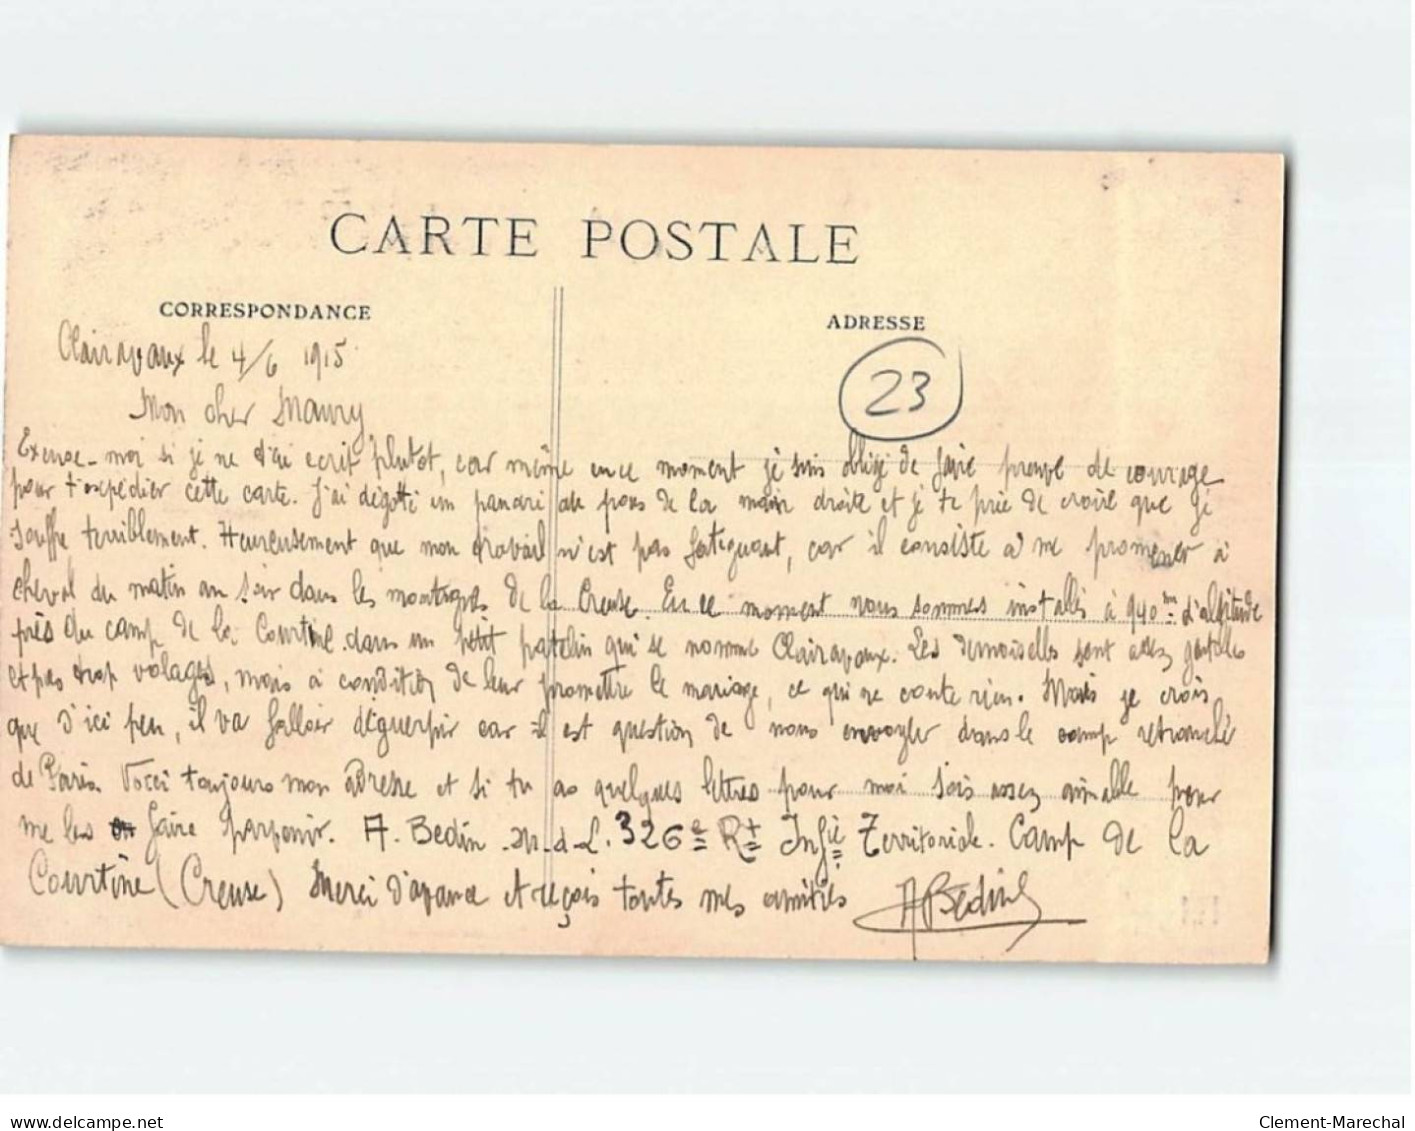 CARTE POSTALE
CORRESPONDANCE
ADRESSE
23
Clairavaux le 4/6 1915
Mon cher Maury
Excuse-moi si je ne t'ai ecrit plutot, car même en ce moment je suis obligé de faire preuve de courage
pour t'expédier cette carte. J'ai dégotté un panari au pous de la main droite et je te prie de croire que j'
souffre terriblement. Heureusement que mon travail n'est pas fatiguant, car il consiste à me promener à
cheval du matin au soir dans les montagnes de la Creuse. En ce moment nous sommes installés à 940m d'altitude
près du camp de la Courtine dans un petit patelin qui se nomme Clairavaux. Les demoiselles sont assez gentilles
et pas trop volages, mais à condition de leur promettre le mariage, ce qui ne coute rien. Mais je crois
que d'ici peu, il va falloir déguerpir car il est question de nous envoyer dans le camp retranché
de Paris. Voici toujours mon adresse et si tu as quelques lettres pour moi sois assez aimable pour
me les faire parvenir. A. Bedin m-d-L. 326e Rt Infie Territoriale. Camp de La
Courtine (Creuse) Merci d'avance et reçois toutes mes amitiés ABedin
delcampe.net
Clement-Marechal